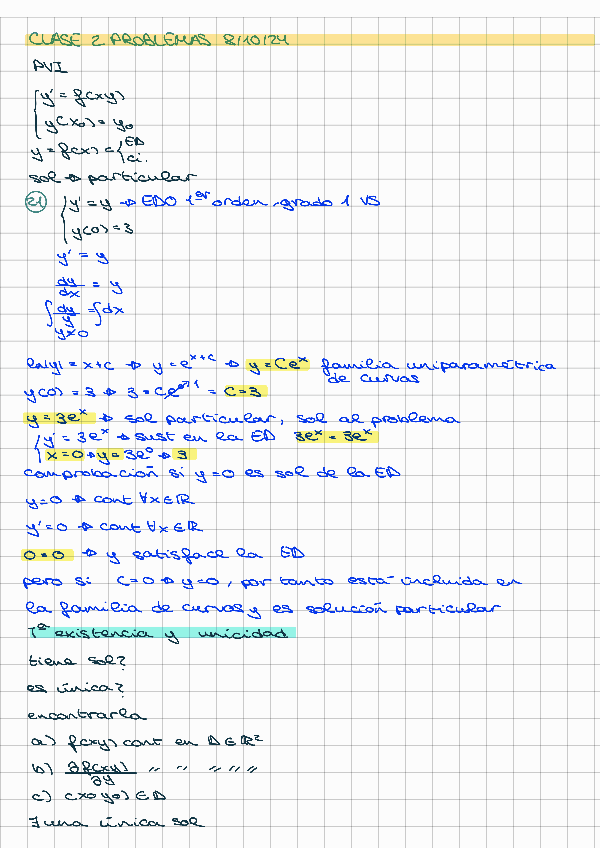 CLASE 2 PROBLEMAS 8/10/24
PVI
{ y' = f(x,y)
y(x₀) = y₀
y = f(x) = { ED
ci.
sol → particular
21 { y' = y → EDO 1er orden, grado 1 VS
y(0) = 3
y' = y
dy/dx = y
∫ dy/y = ∫ dx
y≠0
ln|y| = x+c → y = e^(x+c) → y = Ce^x familia uniparamétrica
de curvas
y(0) = 3 → 3 = Ce^0 1 = C=3
y = 3e^x → sol particular, sol al problema
{ y' = 3e^x → sust en la ED 3e^x = 3e^x
x=0 → y = 3e^0 → 3
comprobación si y=0 es sol de la ED
y=0 → cont ∀x∈ℝ
y'=0 → cont ∀x∈ℝ
0=0 → y satisface la ED
pero si C=0 → y=0, por tanto está incluida en
la familia de curvas y es solución particular
Tª existencia y unicidad
tiene sol?
es única?
encontrarla
a) f(x,y) cont en D∈ℝ²
b) ∂f(x,y)/∂y " " " " "
c) (x₀,y₀)∈D
∃ una única sol